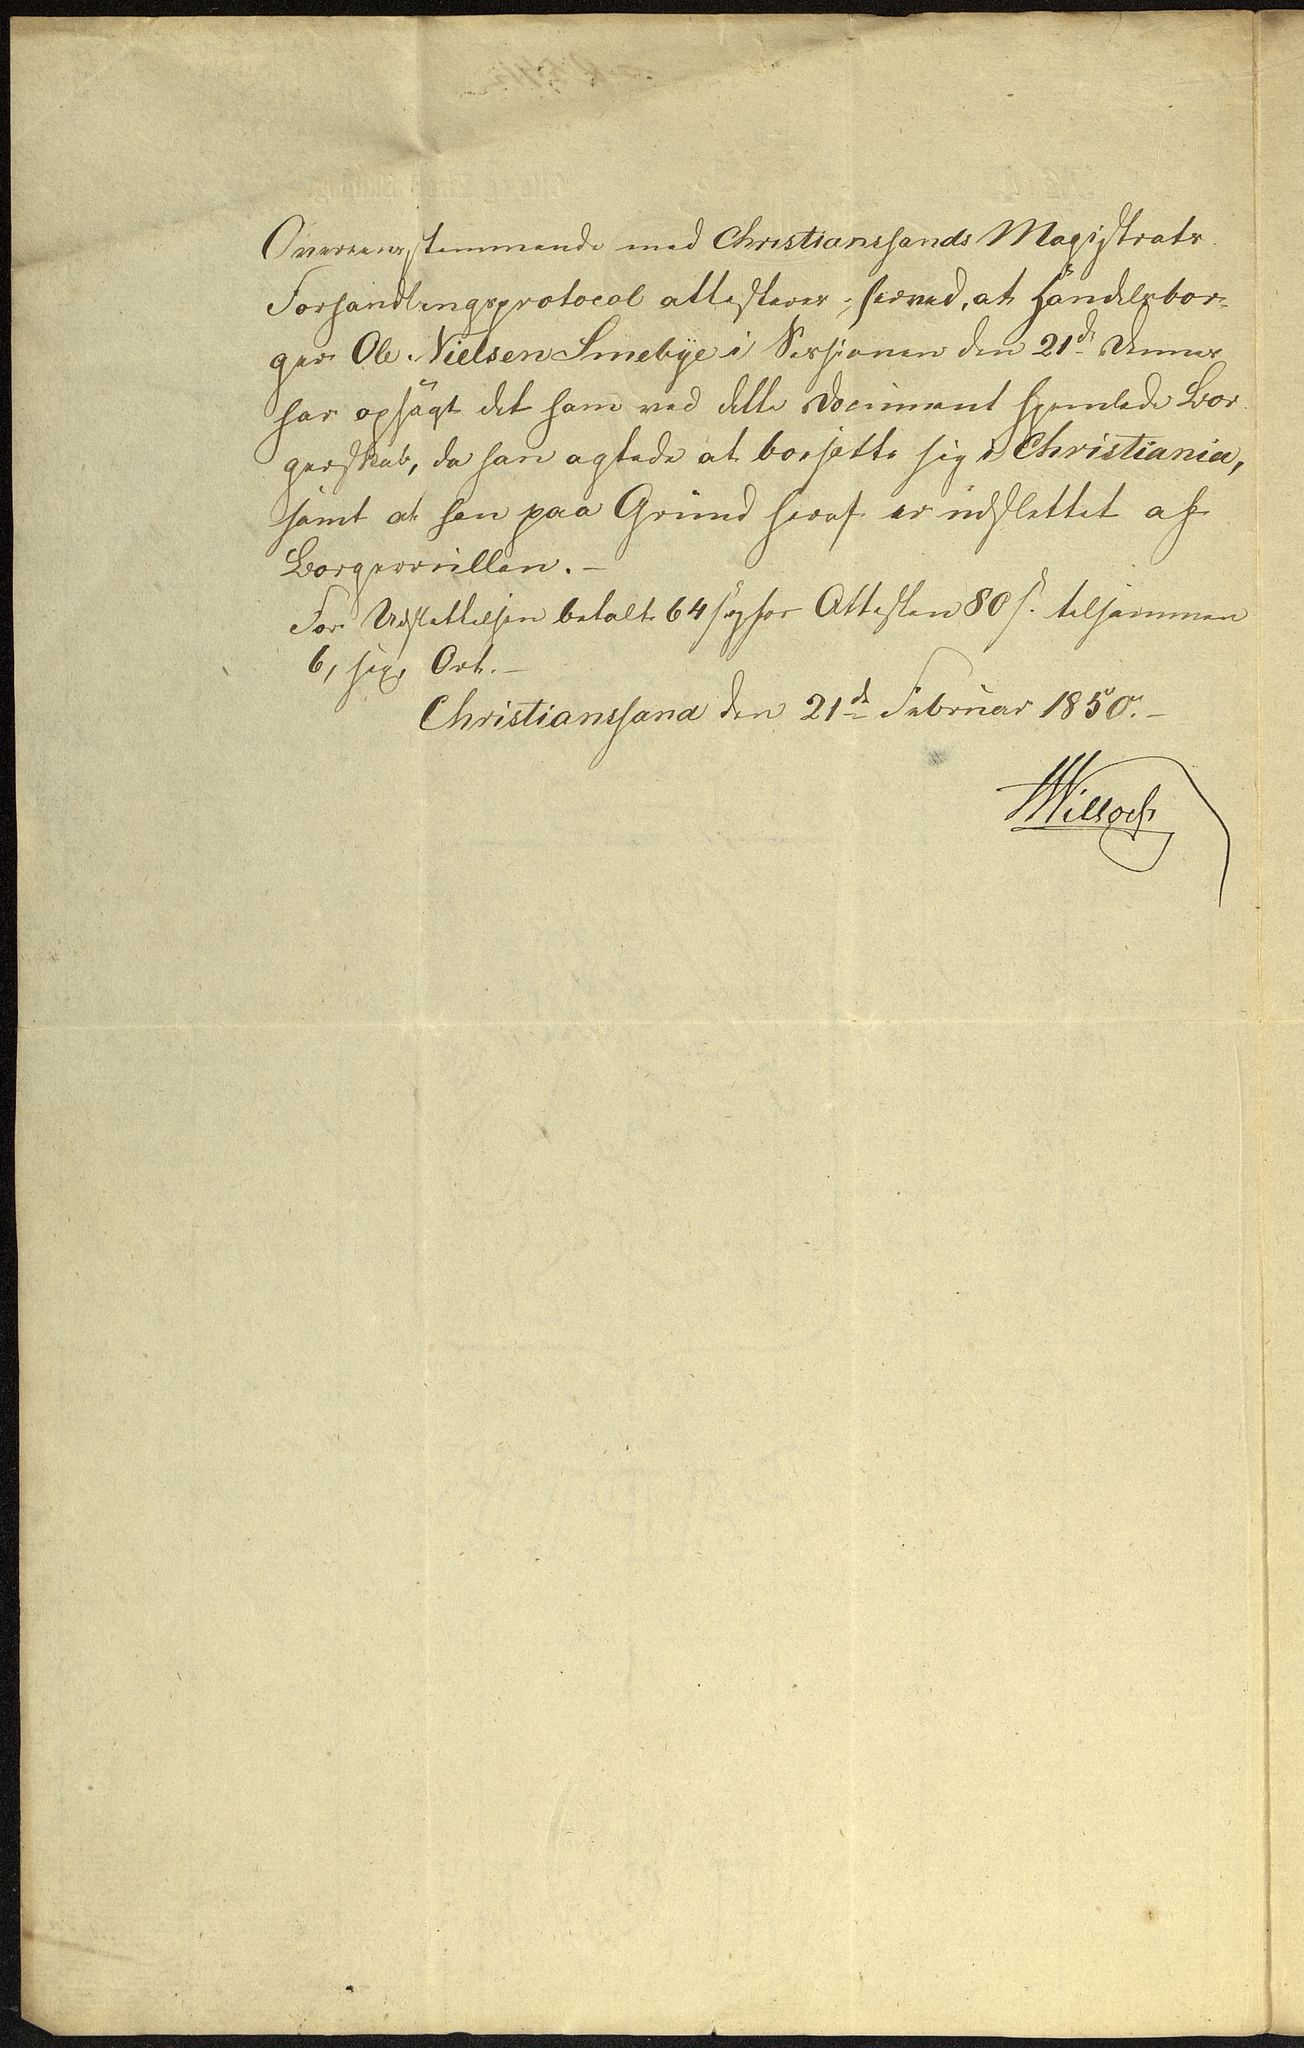 Overeensstemmende med Christianssands Magistrats
Forhandlingsprotocol attesteres herved, at Handelsbor-
ger Ole Nielsen Smebye i Sessionen den 21de Dennes
har opsagt det ham ved dette Document meddeelte Bor
gerskab, da han agtede at bosætte sig i Christiania,
samt at han paa Grund heraf er udslettet af
Borgerrullen. –
For Udslettelsen betalt 64 s og for Attesten 80 s. tilsammen
6, sex, Ort. –
Christianssand den 21de Februar 1850. –
Willoch